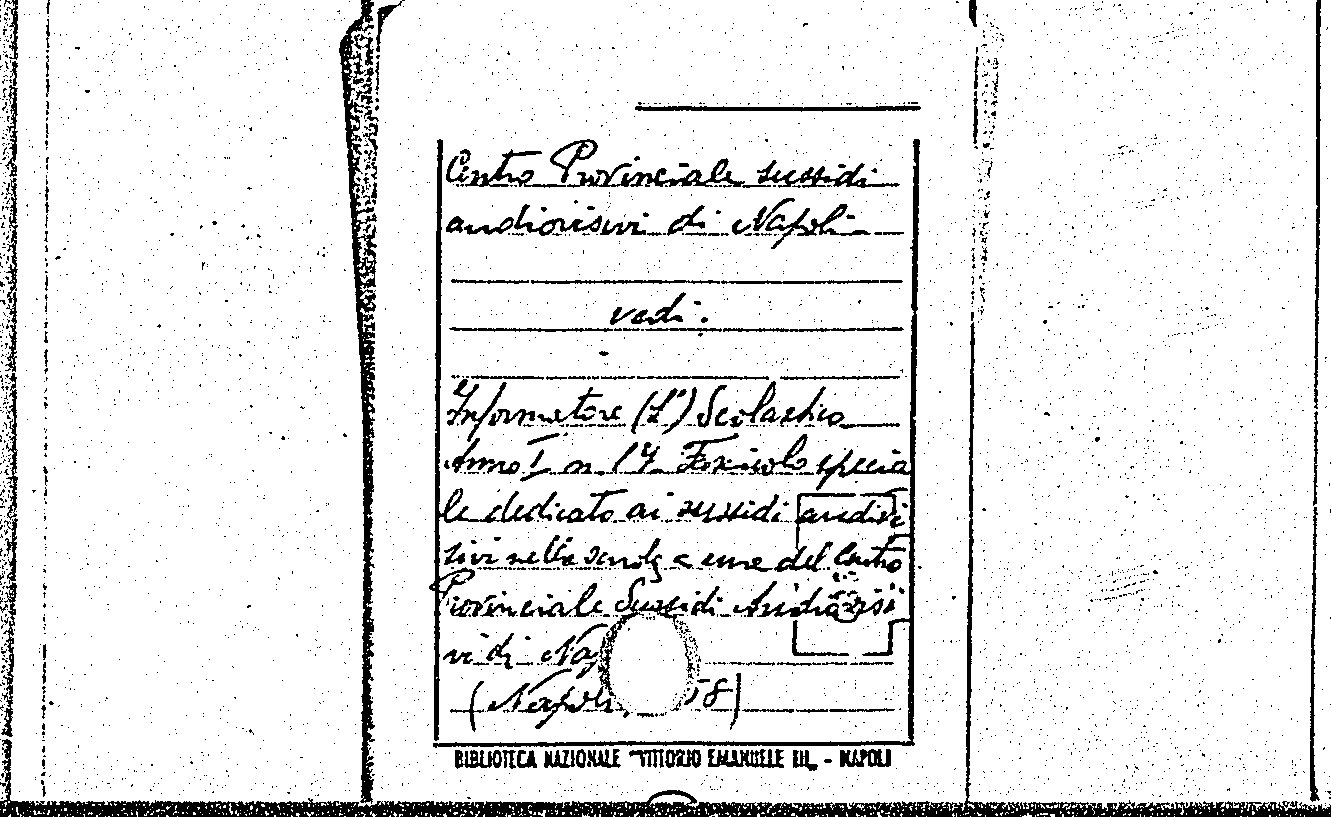 Centro Provinciale sussidi
audiovisivi di Napoli
vedi:
Informatore (L') Scolastico
Anno I n. 17 Fascicolo specia
le dedicato ai sussidi audiovi
sivi nella scuola a cura del Centro
Provinciale Sussidi Audiovisi
vi di
(Napoli, 58)
BIBLIOTECA NAZIONALE "VITTORIO EMANUELE III" - NAPOLI